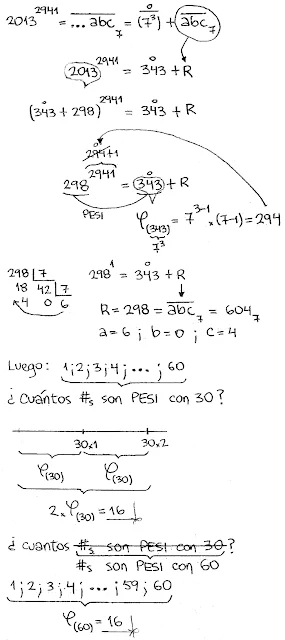 2013²⁹⁴¹ = ...abc₇ = (7³)° + abc₇
2013²⁹⁴¹ = 343° + R
(343° + 298)²⁹⁴¹ = 343° + R
294° + 1
2941
298 = 343° + R
PESI
φ(343) = 7³⁻¹ × (7-1) = 294
7³
298 | 7
18 42 | 7
4 0 6
298¹ = 343° + R
R = 298 = abc₇ = 604₇
a = 6 ; b = 0 ; c = 4
Luego: 1; 2; 3; 4; ... ; 60
¿Cuántos #s son PESI con 30?
30×1 30×2
φ(30) φ(30)
2×φ(30) = 16
¿cuantos #s son PESI con 30?
#s son PESI con 60
1; 2; 3; 4; ... ; 59; 60
φ(60) = 16